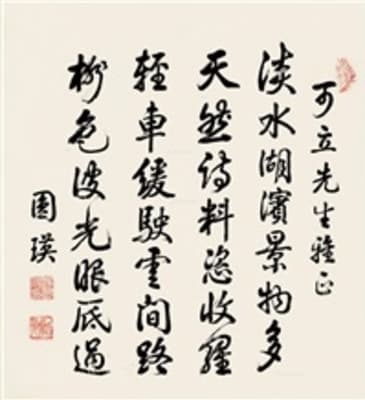 可立先生雅正
淡水湖濱景物多
天然詩料恣收羅
輕車緩駛雲間路
柳色波光眼底過
園瑛